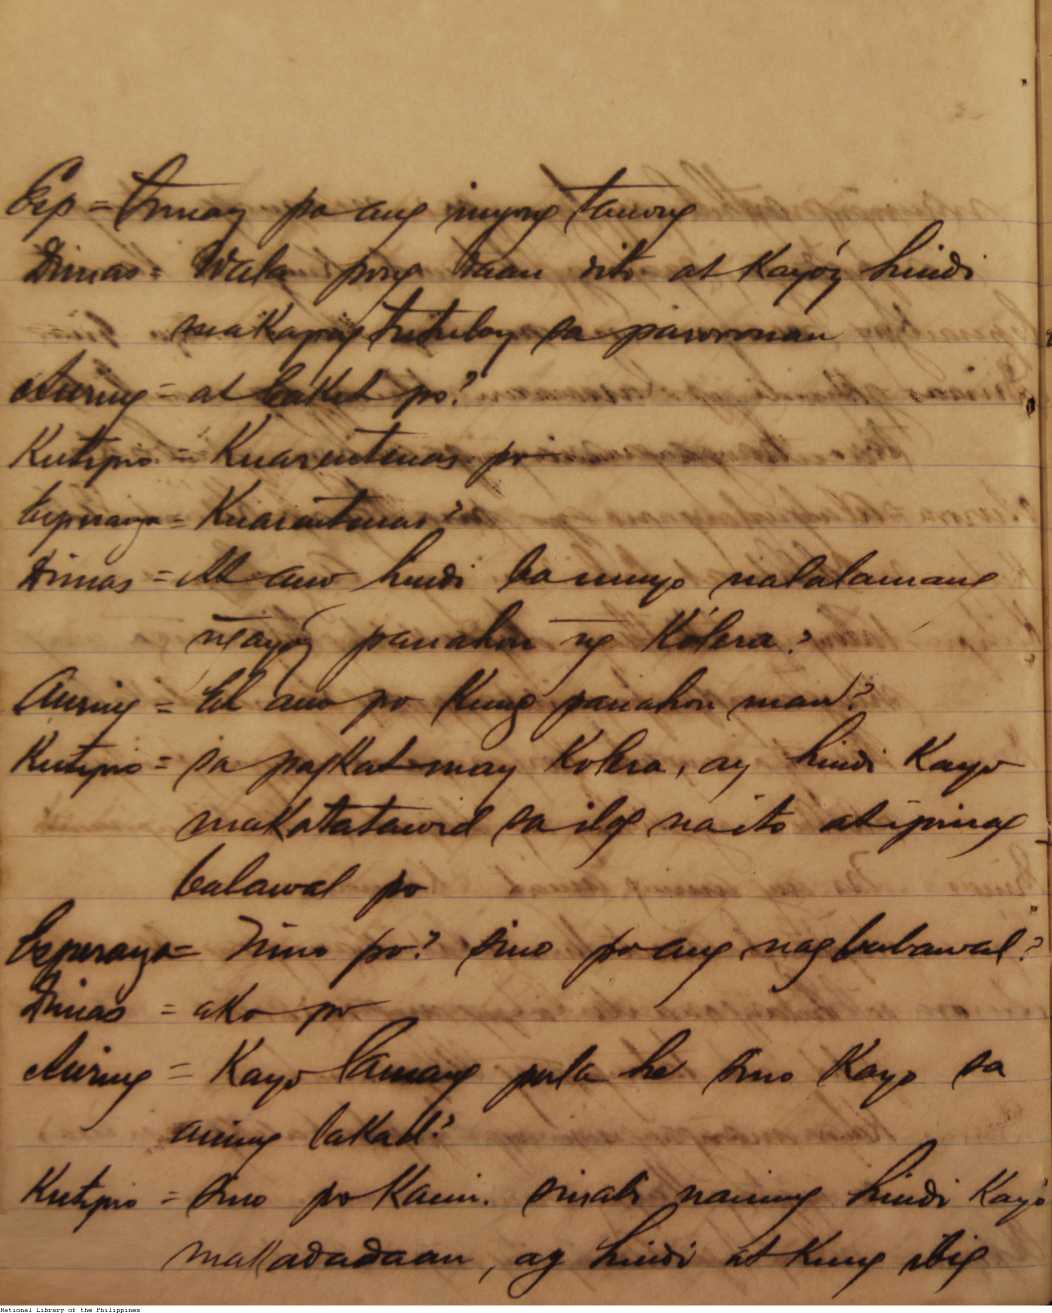 Esp = Tunay po ang inyong tanong
Dimas = Wala pong daan dito at Kayo'y hindi
makapagtutuloy sa paroronan
Auring = at bakit po?
Kutipio = Kuarentenas po
Esperanza = Kuarentenas?
Dimas = At ano hindi ba ninyo nalalamang
ngayo'y panahon ng Kólera?
Auring = Eh ano po Kung panahon man?
Kutipio = sa pagkat may Kolera, ay hindi Kayo
makatatawid sa ilog na ito at ipinag
babawal po
Esperanza = Nino po? sino po ang nagbabawal?
Dimas = ako po
Auring = Kayo lamang pala he sino Kayo sa
aming lakad?
Kutipio = sino po Kami. sinabi naming hindi Kayo
makadadaan, ay hindi at Kung ibig
National Library of the Philippines